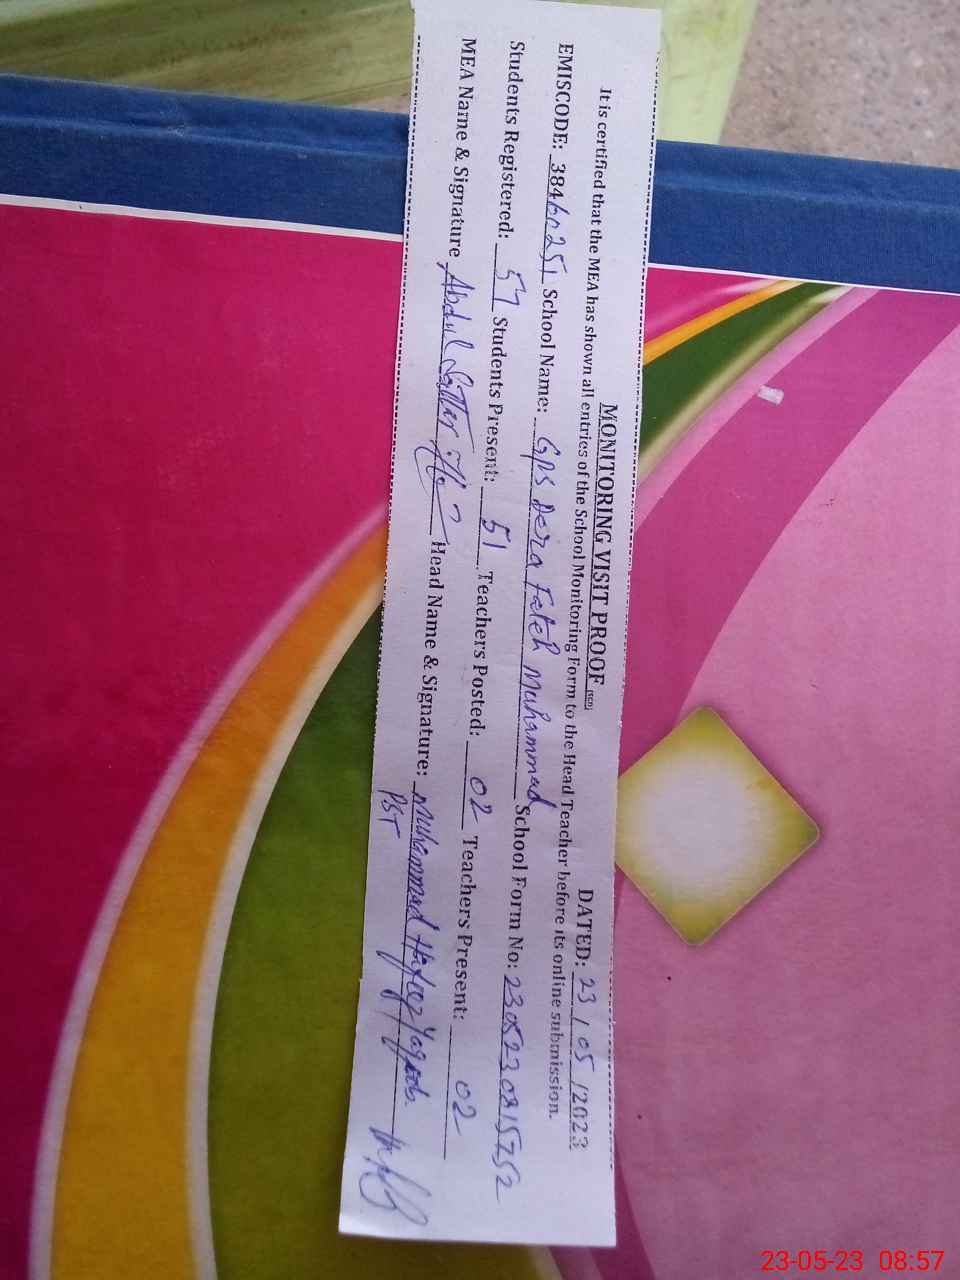 MONITORING VISIT PROOF (SED) DATED: 23 / 05 /2023
It is certified that the MEA has shown all entries of the School Monitoring Form to the Head Teacher before its online submission.
EMISCODE: 38460251 School Name: GPS Dera Fateh Muhammad School Form No: 2305230815752
Students Registered: 57 Students Present: 51 Teachers Posted: 02 Teachers Present: 02
MEA Name & Signature Abdul Sattar Head Name & Signature: Muhammad Hafeez Yaqoob.
PST
23-05-23 08:57